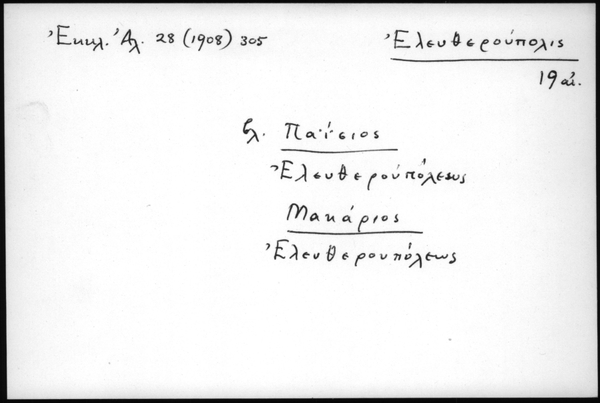 Ἐκκλ. Ἀλ. 28 (1908) 305
Ἐλευθερούπολις
19 αἰ.
βλ. Παΐσιος
Ἐλευθερουπόλεως
Μακάριος
Ἐλευθερουπόλεως